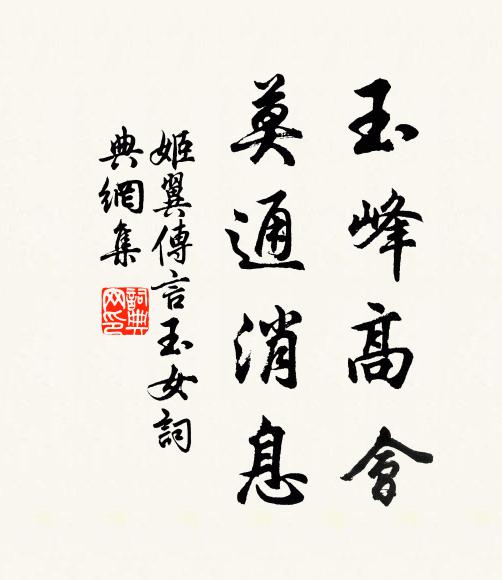 玉峰高會
莫通消息
姬翼傳言玉女詞
典網集
詞典
网印